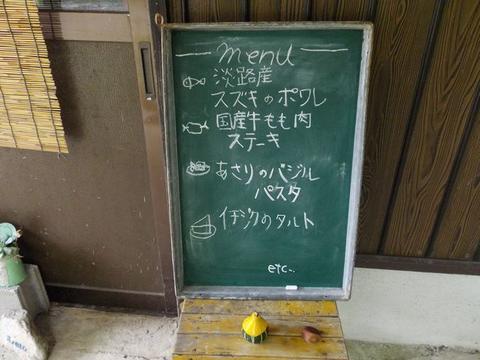 menu
淡路産
スズキのポワレ
国産牛もも肉
ステーキ
あさりのバジル
パスタ
イチジクのタルト
etc...